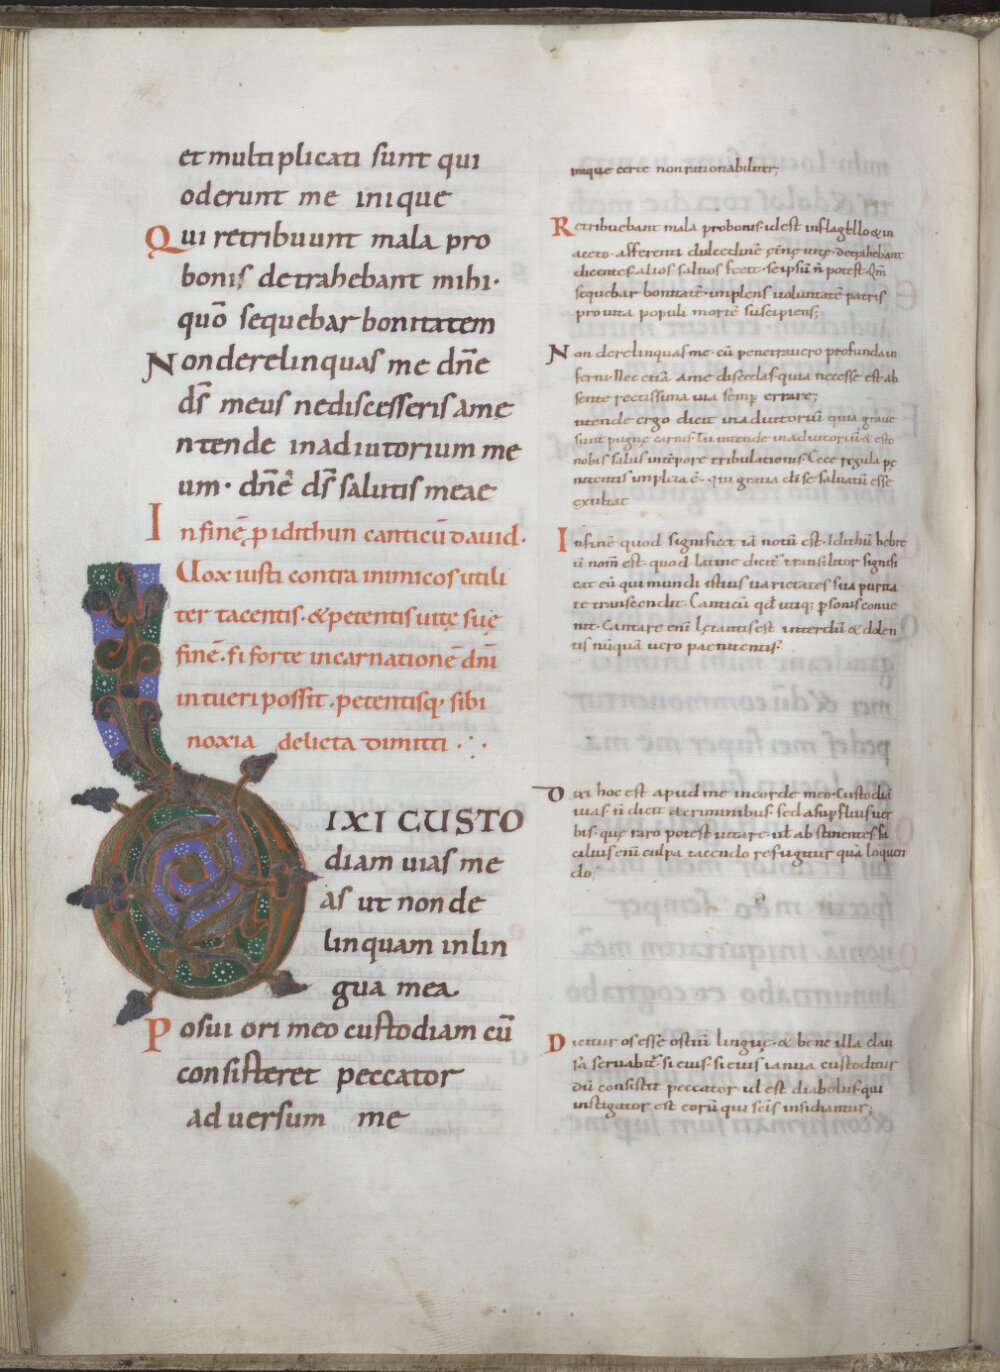 et multiplicati sunt qui
oderunt me inique
Qui retribuunt mala pro
bonis detrahebant mihi·
quō sequebar bonitatem
Non derelinquas me dn̄e
ds̄ meus nediscesseris ame
ntende inadiutorium me
um· dn̄e ds̄ salutis meae
Infinē ꝑ idithun canticū dauid·
Uox iusti contra inimicos utili
ter tacentis· &petentis uitę suę
finē· si forte incarnationē dn̄i
intueri possit· petentisq, sibi
noxia delicta dimitti
IXI CUSTO
diam uias me
as ut non de
linquam inlin
gua mea
Posui ori meo custodiam cū
consisteret peccator
aduersum me
inique certe nonrationabiliter;
Retribuebant mala probonis· idest inflagello & in
aceto· afferenti dulcedinē
dicentes· alios saluos fecit· seipsū n̄ potest· Qm̄
sequebar bonitatē· implens uoluntatē patris
prouita populi mortē suscipiens;
Non derelinquas me· cū penetrauero profunda in
ferni· Nec etiā ame discedas· quia necesse est· ab
sente rectissima uia semp̄ errare;
ntende ergo dicit inadiutoriū quia graue
sunt pugnę carnis· Tu intende inadiutoriū· & esto
nobis salus intēpore tribulationis· Ecce regula pę
nitentis impleta ē· qui gratia di se saluatū esse
exultat
Infinē quod significet iā notū est· Idithū hebre
ū nom̄ est· quod latine dicit̄ transilitor signifi
cat eū qui mundi istius uarietates sua purita
te transcendit· Canticū qđ utiq; ꝑsonis conue
nit· Cantare enī lętantis est interdū & dolen
tis nūquā uero paenitentis·
Dixi hoc est apud me incorde meo· Custodiā
uias· n̄ dicit acriminibus· sed asuꝑfluis uer
bis· quę raro potest uitare· ut abstinentes· fa
cilius enī culpa tacendo refugitur quā loquen
do;
Dicitur os esse ostiū linguę· & bene illa clau
sa seruabit̄· si eius· si eius ianua custoditur
dū consistit peccator· id est diabolus· qui
instigator est eorū qui scīs insidiantur;